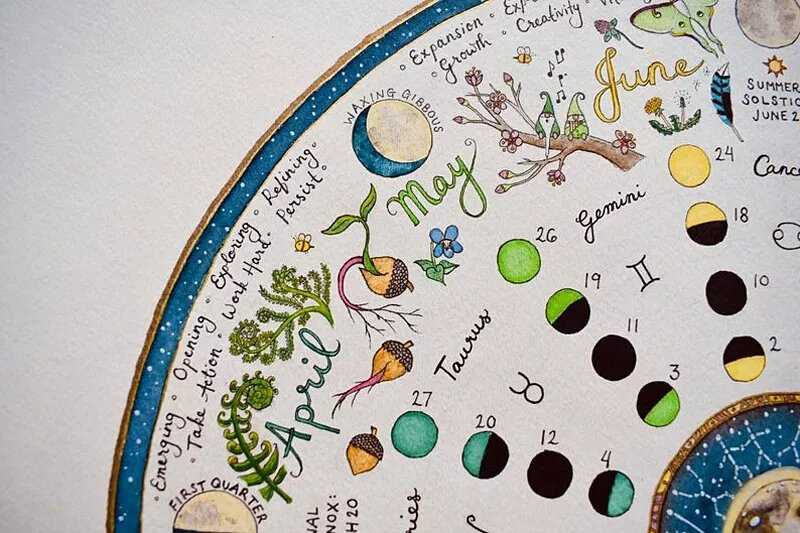 Emerging • Opening • Exploring • Refining •
• Take Action • Work Hard • Persist •
• Expansion •
• Growth • Creativity
WAXING GIBBOUS
FIRST QUARTER
April
May
June
SUMMER
JUNE 2
Taurus
Gemini
♉
♊
27
20
12
4
26
19
11
3
24
18
10
2